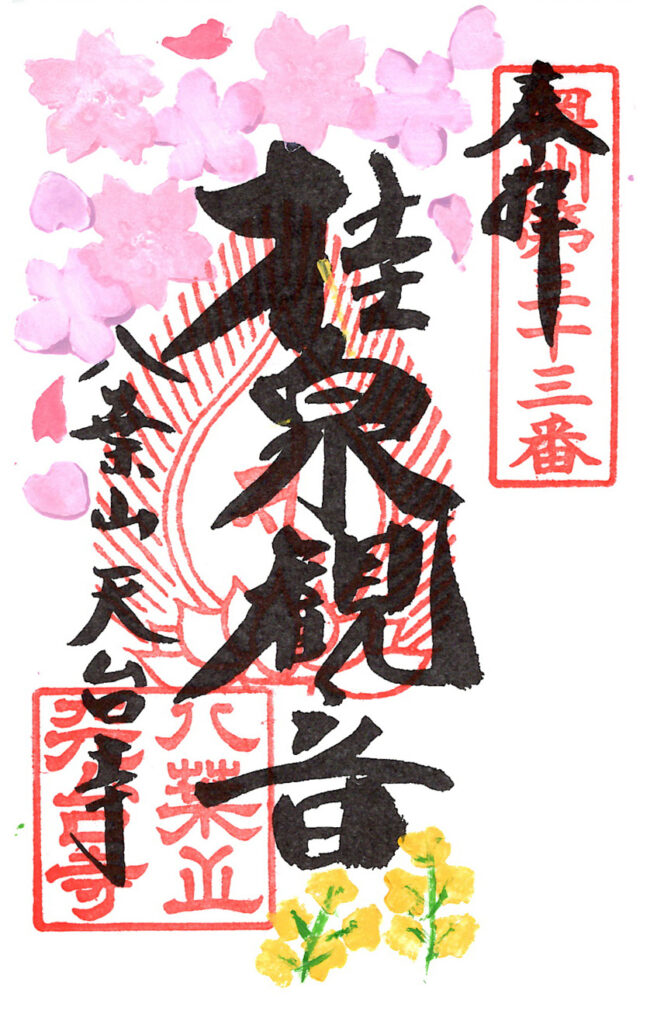 奉拝
奥州第三十三番
桂泉観音
八葉山天台寺
八葉山
天台寺